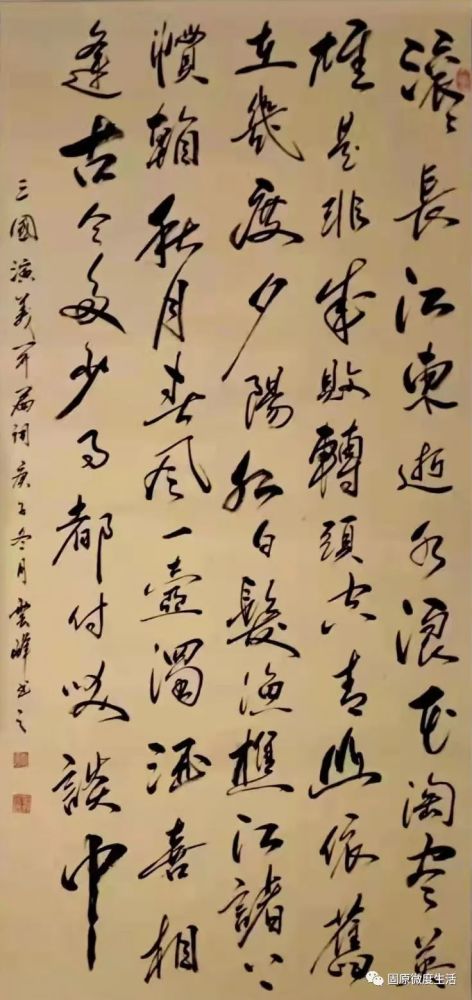 滚〻長江東逝水浪花淘尽英
雄是非成敗轉頭空青山依舊
在幾度夕陽紅白髮漁樵江諸上
慣看秋月春风一壺濁酒喜相
逢古今多少事都付笑談中
三國演義开篇詞庚子冬月雲峰书之
固原微度生活